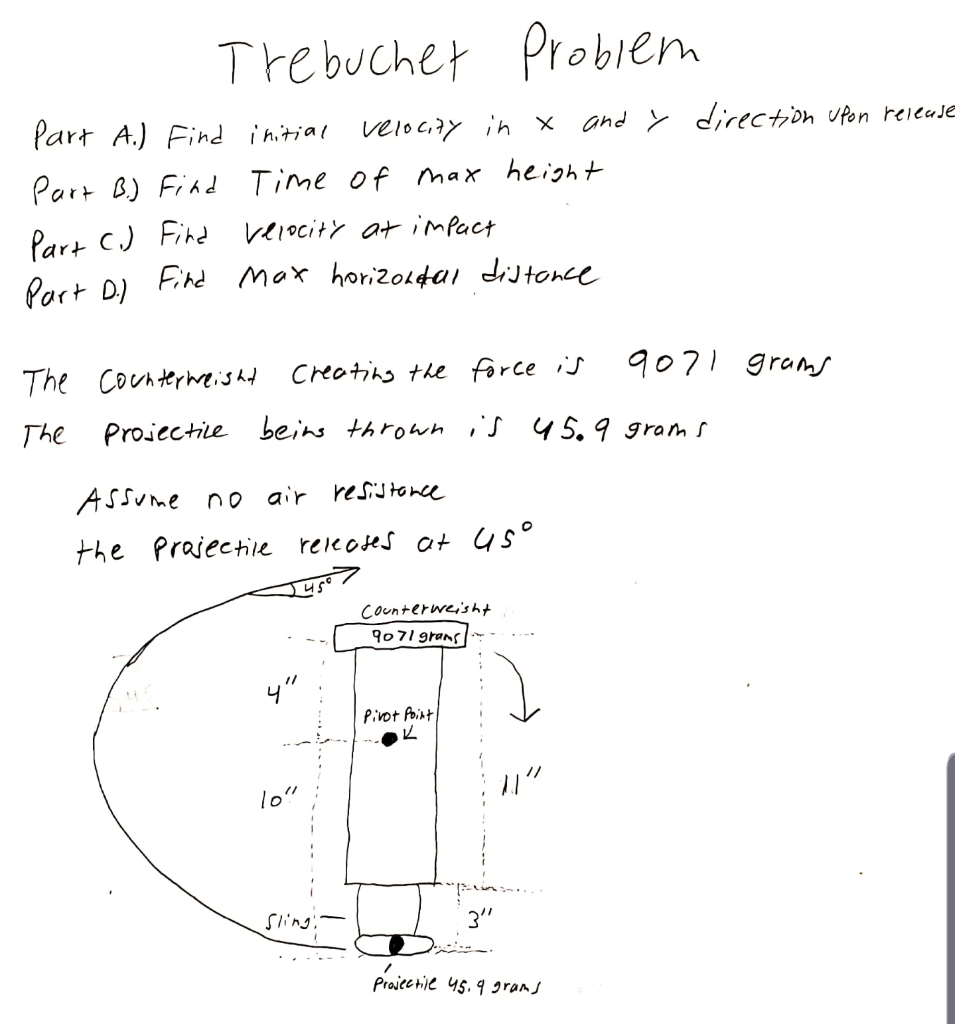 Trebuchet Problem
Part A.) Find initial velocity in x and y direction upon release
Part B.) Find Time of max height
Part C.) Find velocity at impact
Part D.) Find Max horizontal distance
The Counterweight Creating the force is 9071 grams
The Projectile being thrown is 45.9 grams
Assume no air resistance
the Projectile releases at 45°
45°
Counterweight
9071 grams
4"
Pivot Point
10"
11"
Sling
3"
Projectile 45.9 grams